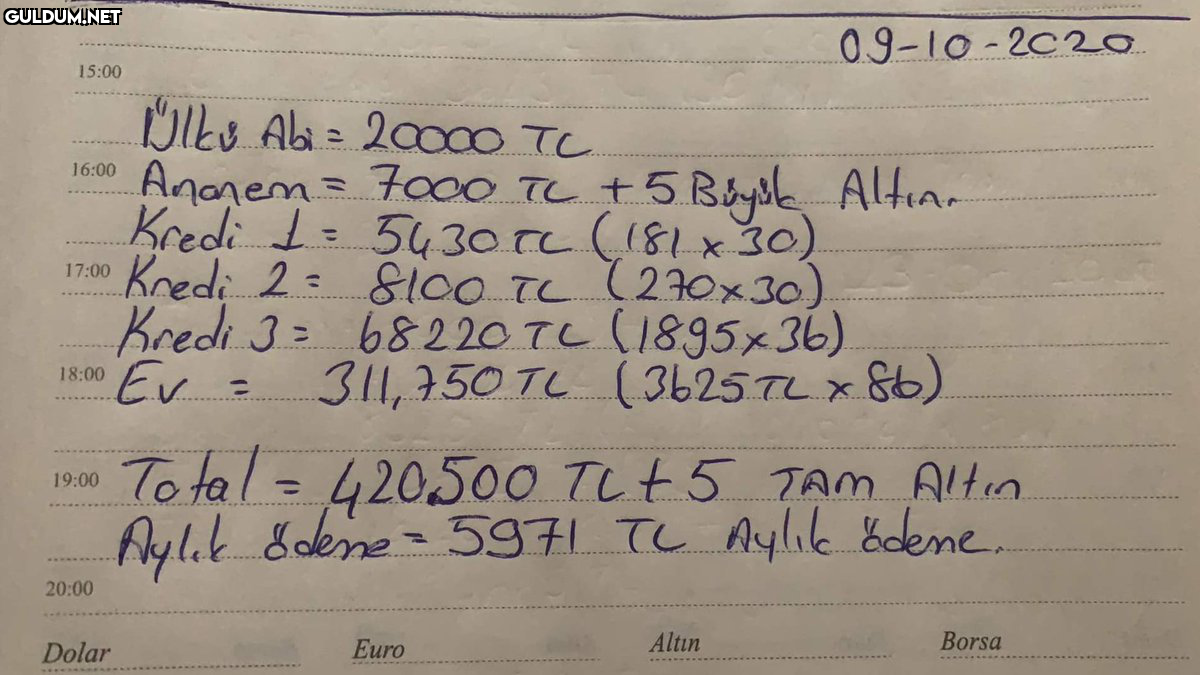 GULDUM.NET
09-10-2020
15:00
Ülkü Abi = 20000 TL
16:00
Ananem = 7000 TL + 5 Büyük Altın.
Kredi 1 = 5430 TL (181 x 30)
17:00
Kredi 2 = 8100 TL (270x30)
Kredi 3 = 68220 TL (1895x36)
18:00
Ev = 311,750 TL (3625 TL x 86)
19:00
Total = 420.500 TL + 5 TAM Altın
Aylık ödeme = 5971 TL Aylık ödeme.
20:00
Dolar Euro Altın Borsa